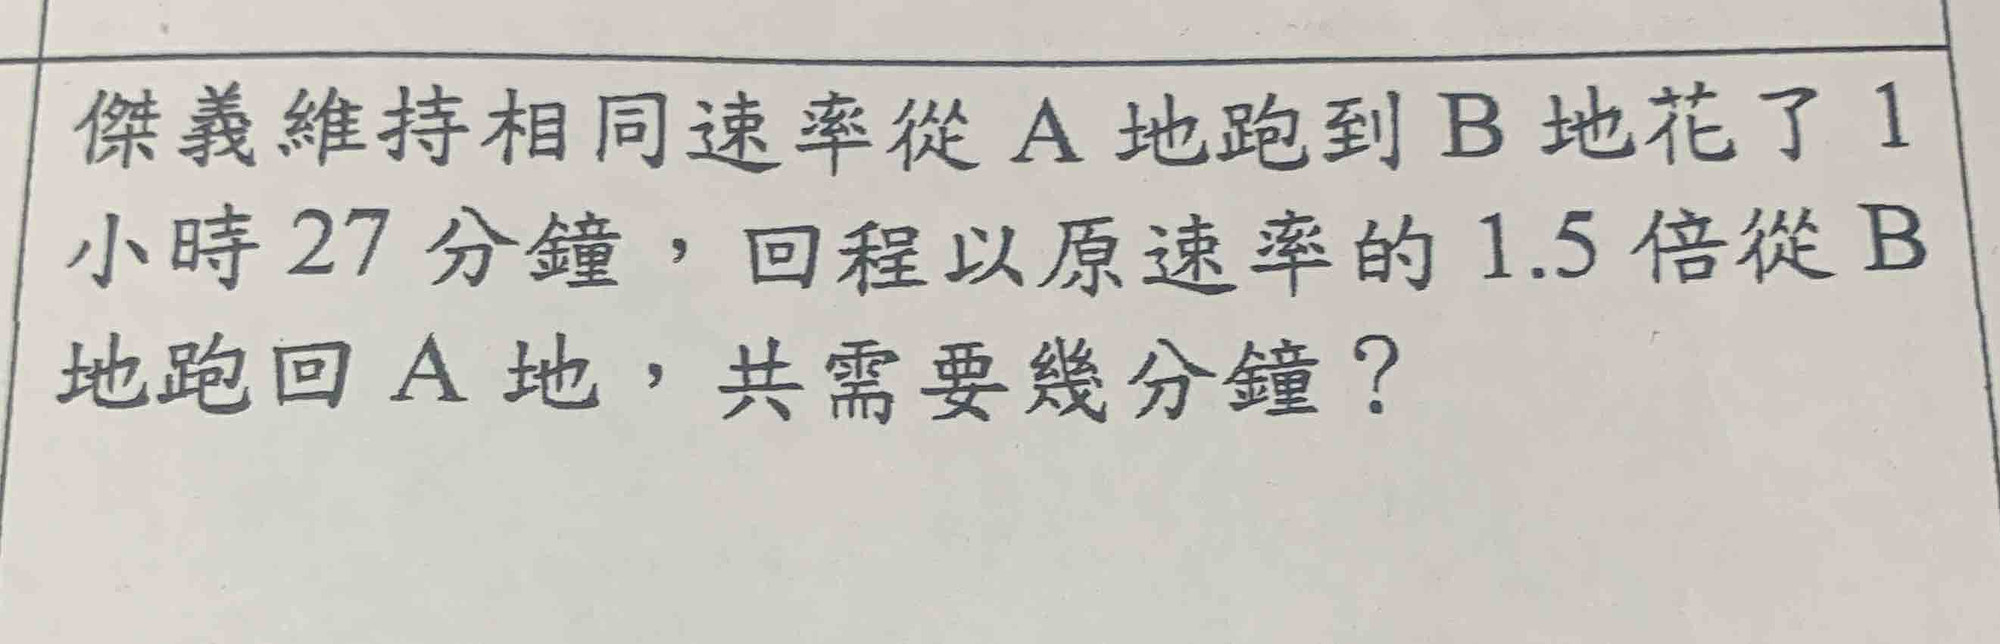 傑義維持相同速率從 A 地跑到 B 地花了 1
小時 27 分鐘，回程以原速率的 1.5 倍從 B
地跑回 A 地，共需要幾分鐘？